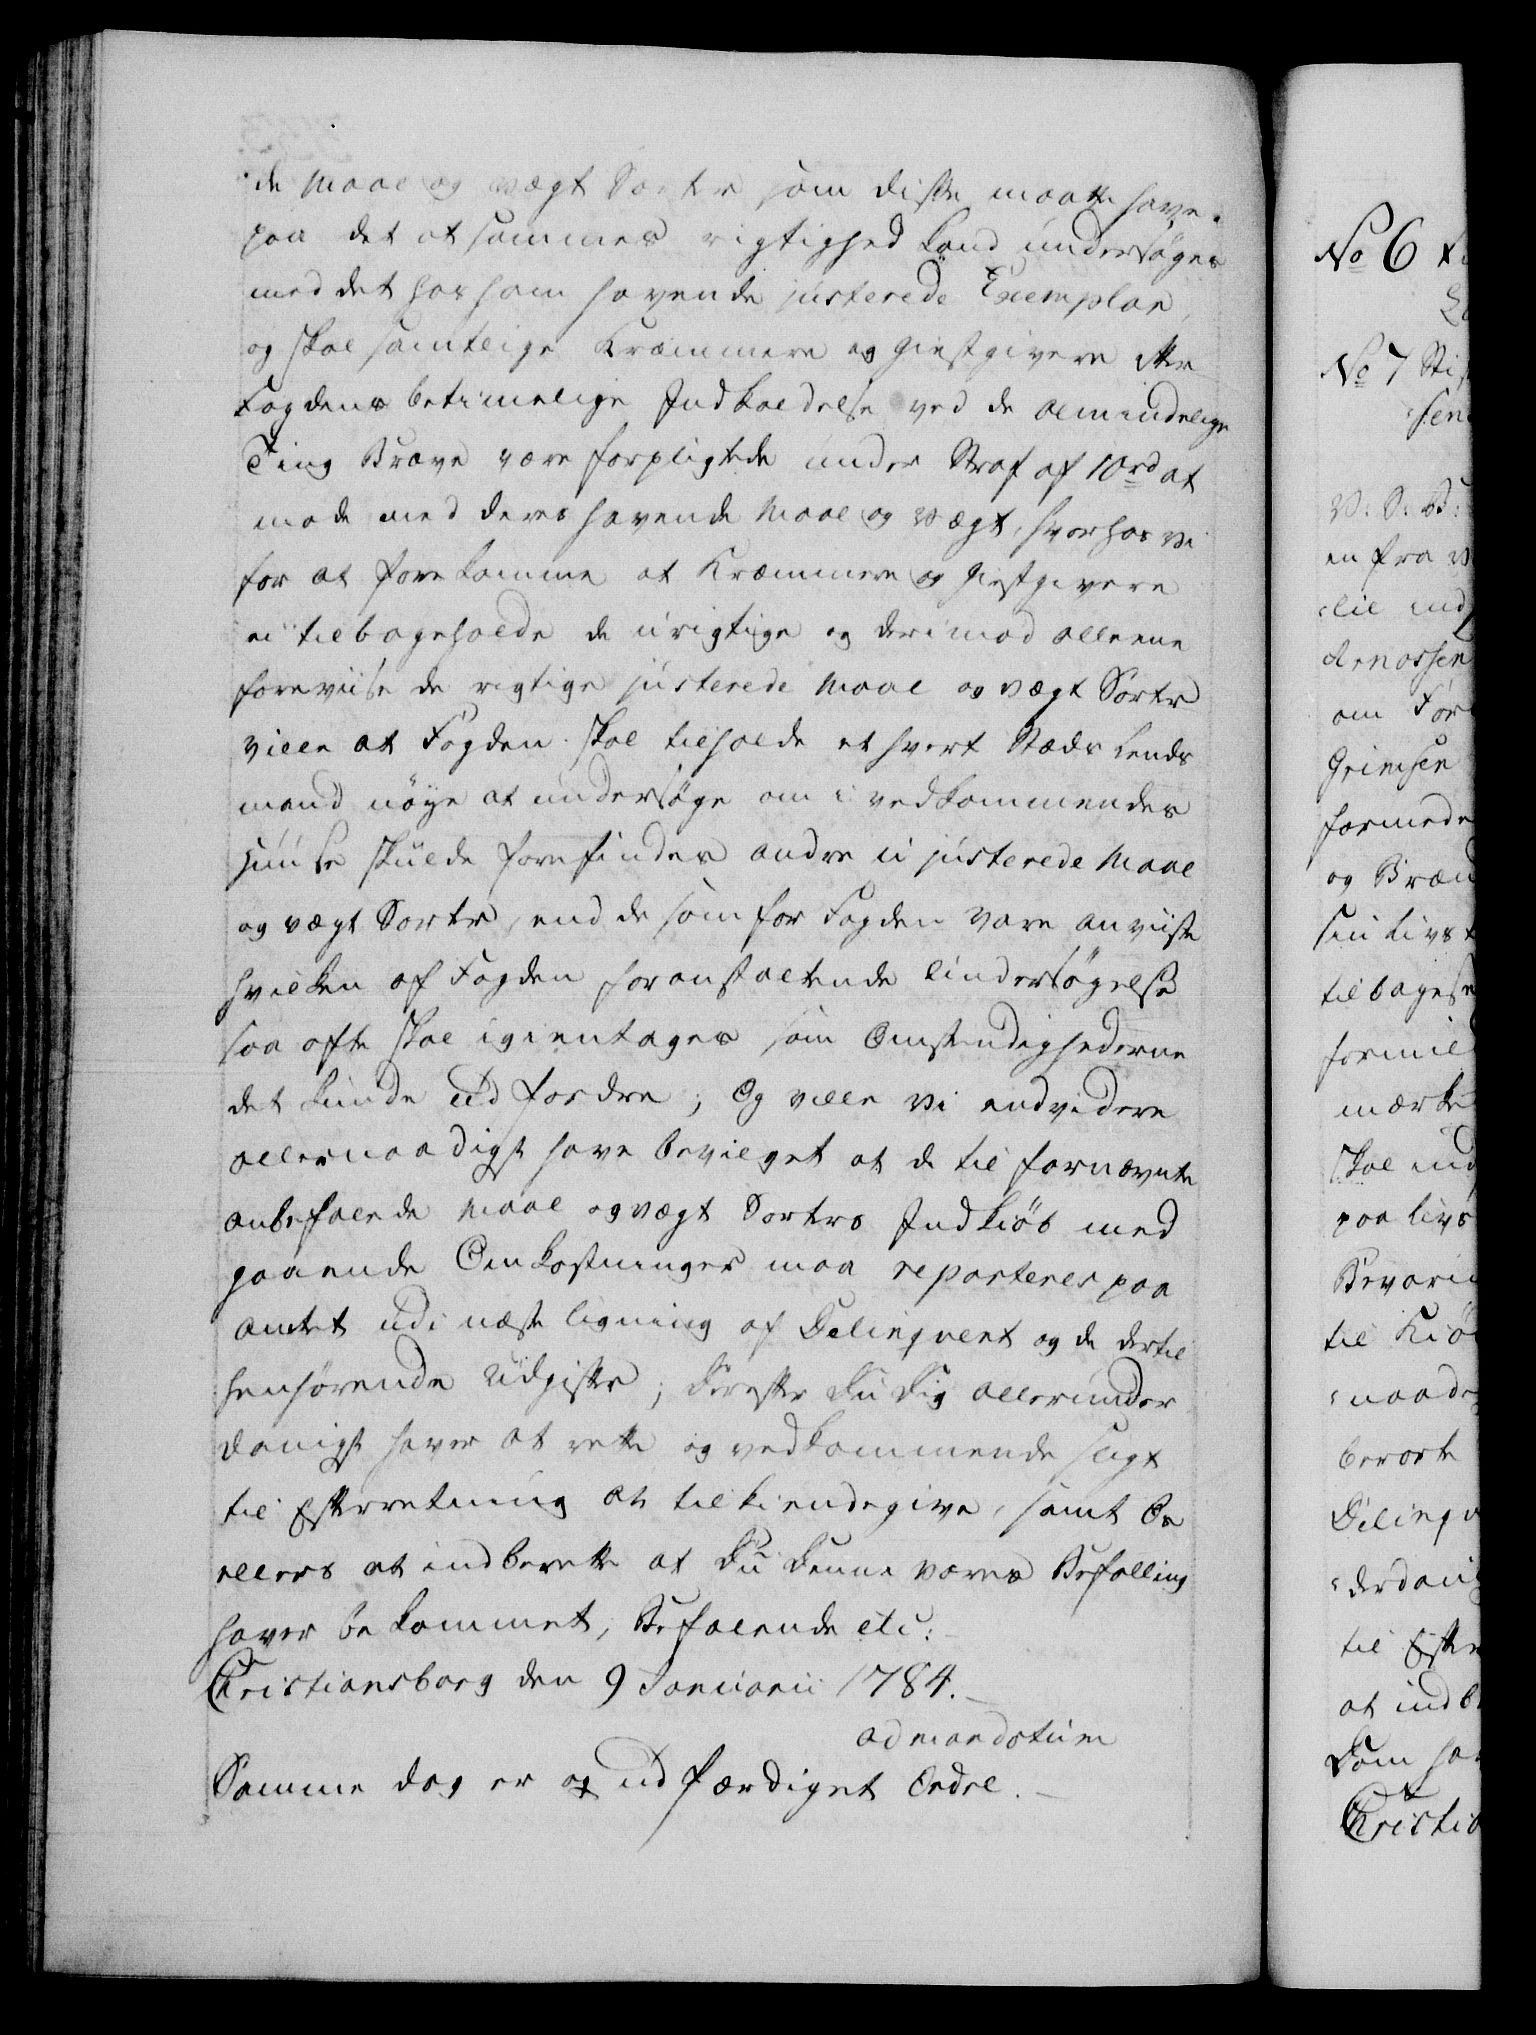 de Maal og vægt Sorter som disse maatte have,
paa det at sammes rigtighed kand undersøges
med det hos ham havende justerede Exemplar,
og skal samtlige Kræmmere og Giestgivere efter
Fogdens betimelige Indkaldelse ved de almindelige
Ting Stævne være forpligtede under Straf af 10 rd at
møde med deres havende Maal og vægt, hvorhos vi
for at forekomme at Kræmmere og Giestgivere
ei tilbageholde de urigtige og derimod alleene
foreviise de rigtige justerede Maal og vægt Sorter
ville at Fogden skal tilholde et hvert Stæds Lends
mand nøye at undersøge om i vedkommendes
Huuse skulde forefindes andre u justerede Maal
og vægt Sorter, end de som for Fogden vare anviiste
hvilken af Fogden foranstaltende Undersøgelse
saa ofte skal igientages som Omstendighederne
det kunde udfordre; Og ville vi endvidere
allernaadigst have bevilget at de til fornævnte
anbefalende Maal og vægt Sorters Indkiøb med
gaaende Omkostninger maa reparteres paa
Amtet udi næste ligning af Delinqvent og de dertil
henhørende Udgifter; Derefter Du Dig allerunder
danigst haver at rette og vedkommende sligt
til Efterretning at tilkiendegive, samt Os
ellers at indberette at Du Denne vores Befalling
haver bekommet, Befalende etc:
Christiansborg den 9 Januarii 1784.
ad mandatum
Samme dag er og udfærdiget Ordre.
No 6
No 7